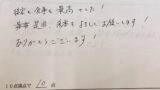 接客も食事も最高でした!
是非、食事をまたお願いします!
ありがとうございます!
10点満点で 10 点